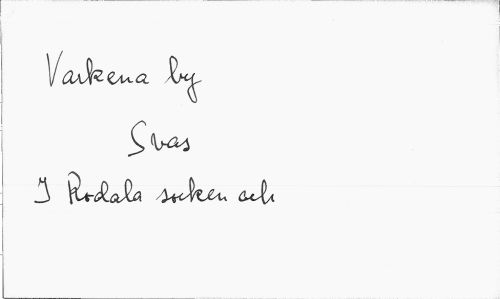 Varkena by
Svas
I Rodala socken och